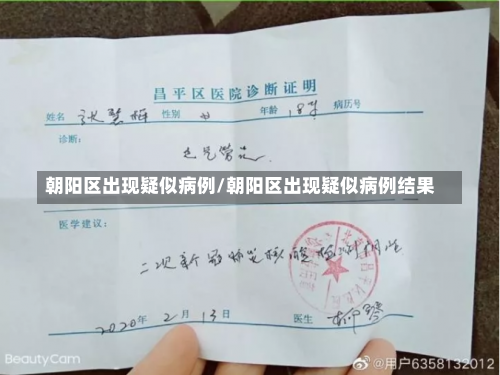 昌平区医院诊断证明
姓名 张慧样 性别 女 年龄 18岁 病历号
诊断：
朝阳区出现疑似病例/朝阳区出现疑似病例结果
医学建议：
二次新冠肺炎核酸检测阳性
2020年 2月 13日 医生
BeautyCam
@用户6358132012